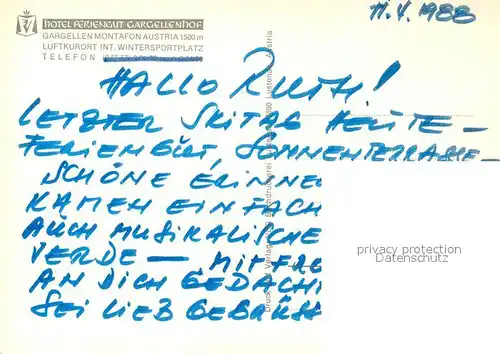 HOTEL FERIENGUT GARGELLENHOF
GARGELLEN MONTAFON AUSTRIA 1500 m
LUFTKURORT INT. WINTERSPORTPLATZ
TELEFON
11.V.1988
HALLO RUTH!
LETZTER SKITAG HEUTE –
FERIENGUT, SONNENTERRASSE –
SCHÖNE ERINNE
KAMEN EINFACH
AUCH MUSIKALISCHE
VERDE – MIT
AN DICH GEDACH
SEI LIEB GEGRÜSS
privacy protection
Datenschutz